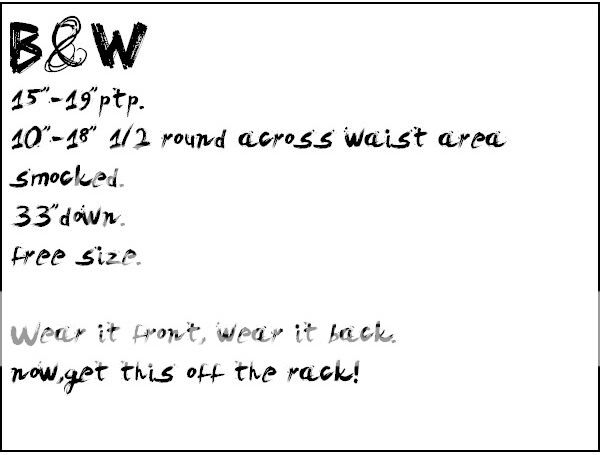 B&W
15"-19"ptp.
10"-18" 1/2 round across waist area
smocked.
33"down.
free size.
Wear it front, wear it back.
now,get this off the rack!